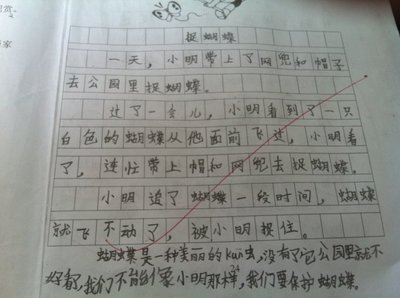 捉蝴蝶
一天，小明带上了网兜和帽子
去公园里捉蝴蝶。
过了一会儿，小明看到了一只
白色的蝴蝶从他面前飞过，小明看
了，连忙带上帽和网兜去捉蝴蝶。
小明追了蝴蝶一段时间，蝴蝶
就飞不动了，被小明捉住。
蝴蝶是一种美丽的kūn虫，没有了它公园里就不
好看了，我们不能像小明那样，我们要保护蝴蝶。